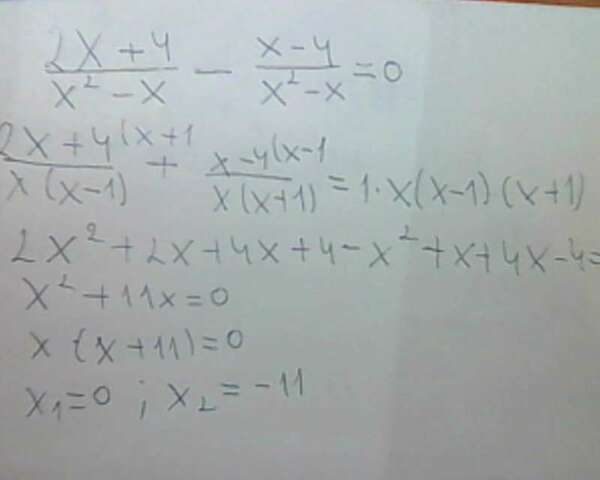 (2x+4)/(x²-x) - (x-4)/(x²-x) = 0
(2x+4(x+1)/(x(x-1)) + (x-4(x-1)/(x(x+1)) = 1·x(x-1)(x+1)
2x²+2x+4x+4-x²+x+4x-4=
x²+11x=0
x(x+11)=0
x₁=0 ; x₂=-11